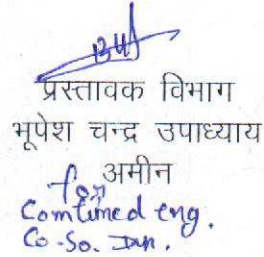 प्रस्तावक विभाग
भूपेश चन्द्र उपाध्याय
अमीन
for
Comtined eng.
Co-So.